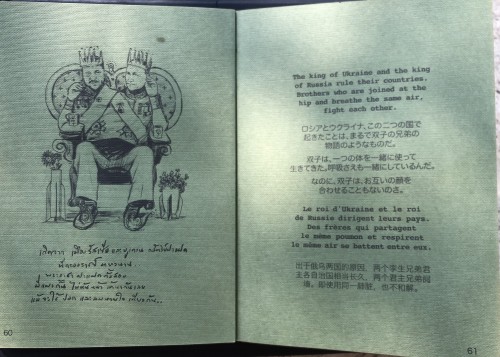 พระราชา ฝาแฝดทั้งสอง
ใช้ ปอด และลมหายใจ เดียวกัน..
60
The king of Ukraine and the king
of Russia rule their countries.
Brothers who are joined at the
hip and breathe the same air,
fight each other.
ロシアとウクライナ、この二つの国で
起きたことは、まるで双子の兄弟の
物語のようなものだ。
双子は、一つの体を一緒に使って
生きてきた。呼吸さえも一緒にしているんだ。
なのに、双子は、お互いの顔を
合わせることもないのさ。
Le roi d'Ukraine et le roi
de Russie dirigent leurs pays.
Des frères qui partagent
le même poumon et respirent
le même air se battent entre eux.
出于俄乌两国的原因，两个孪生兄弟君
主各自治国相当长久，两个君主兄弟阋
墙，即使用同一肺脏，也不和解。
61